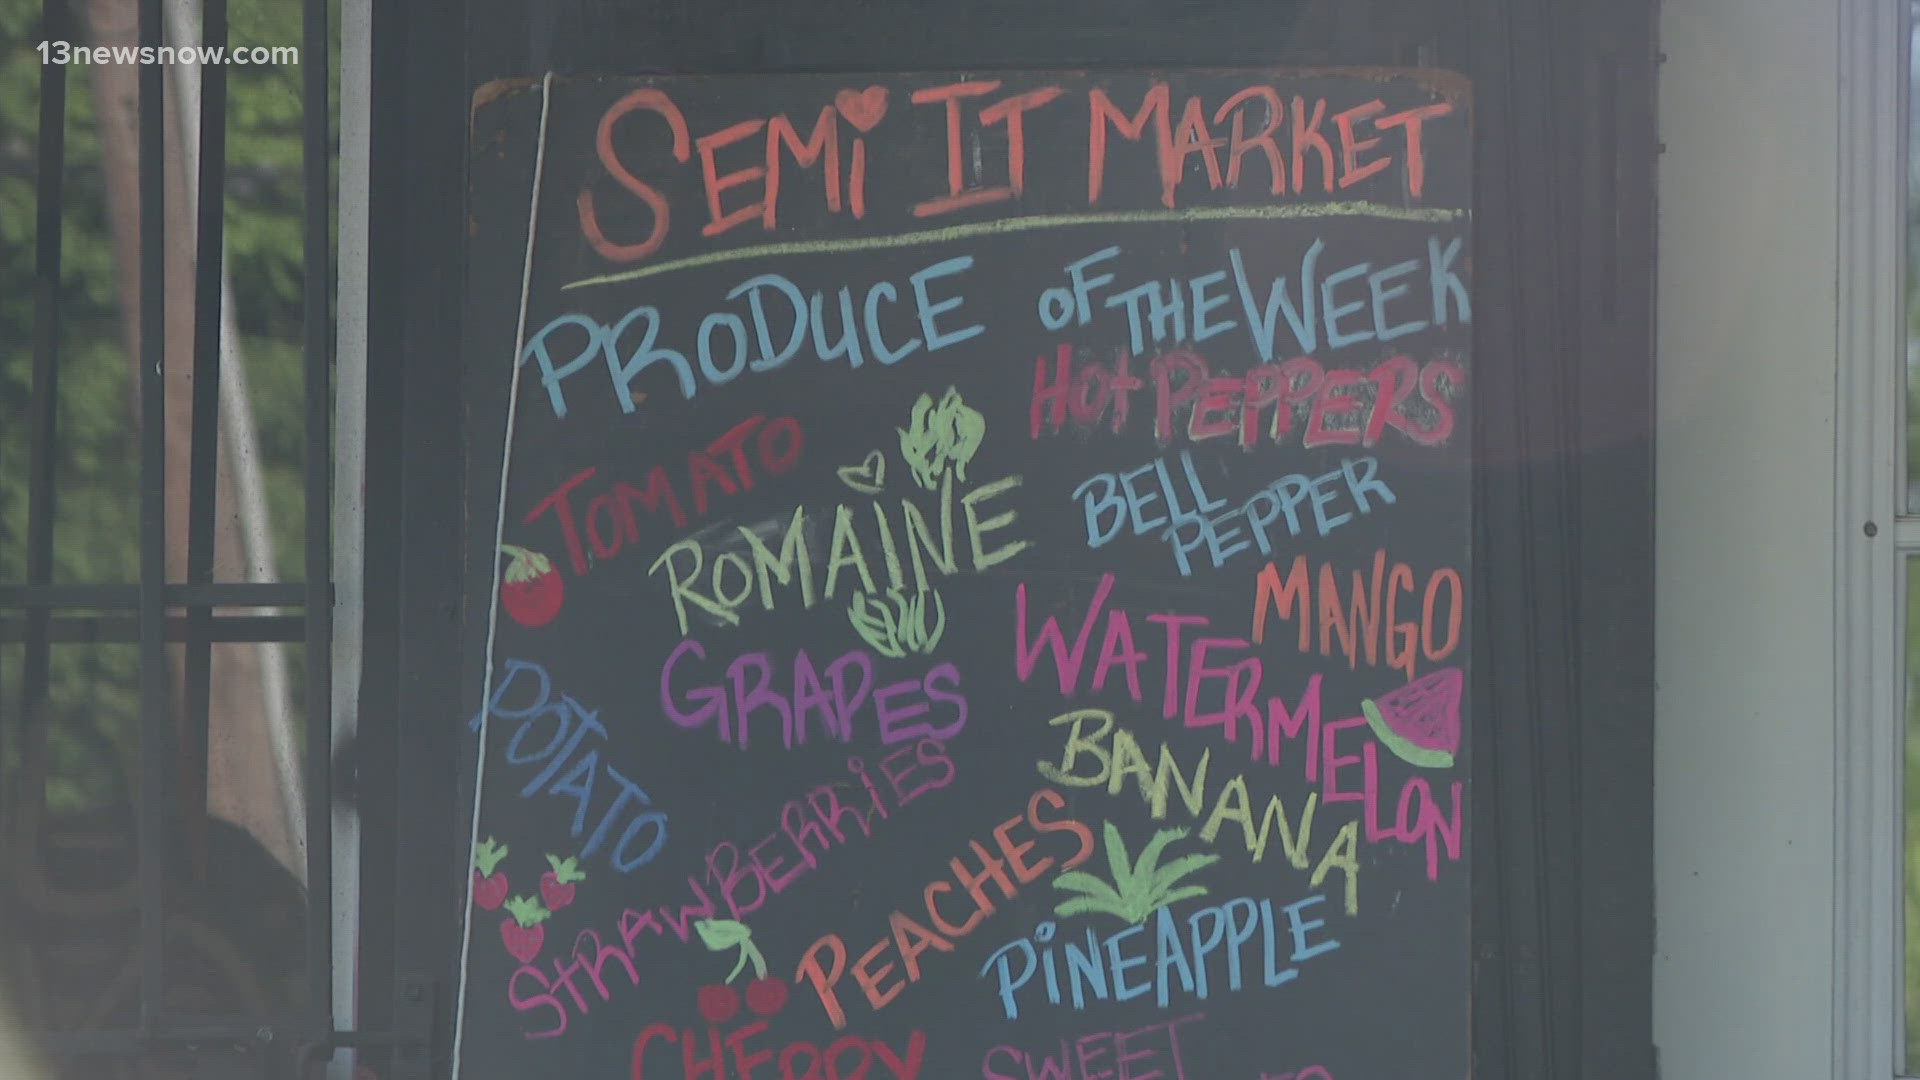 13newsnow.com
SEMi IT MARKET
PRODUCE OF THE WEEK
HOT PEPPERS
TOMATO
ROMAINE
BELL
PEPPER
MANGO
WATERMELON
GRAPES
POTATO
BANANA
STRAWBERRiES
PEACHES
PiNEAPPLE
CHERRY
SWEET